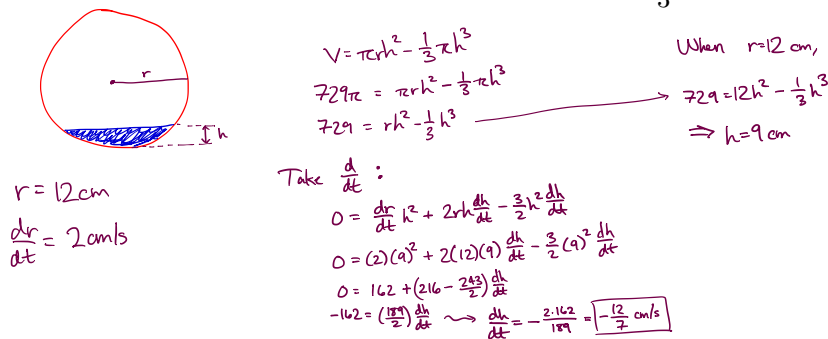 r
h
r = 12cm
dr/dt = 2cm/s
V = πrh² - 1/3 πh³
729π = πrh² - 1/3 πh³
729 = rh² - 1/3 h³
When r=12 cm,
729 = 12h² - 1/3 h³
⇒ h = 9 cm
Take d/dt :
0 = dr/dt h² + 2rh dh/dt - 3/2 h² dh/dt
0 = (2)(9)² + 2(12)(9) dh/dt - 3/2 (9)² dh/dt
0 = 162 + (216 - 243/2) dh/dt
-162 = (189/2) dh/dt ⇝ dh/dt = - 2·162/189 = -12/7 cm/s